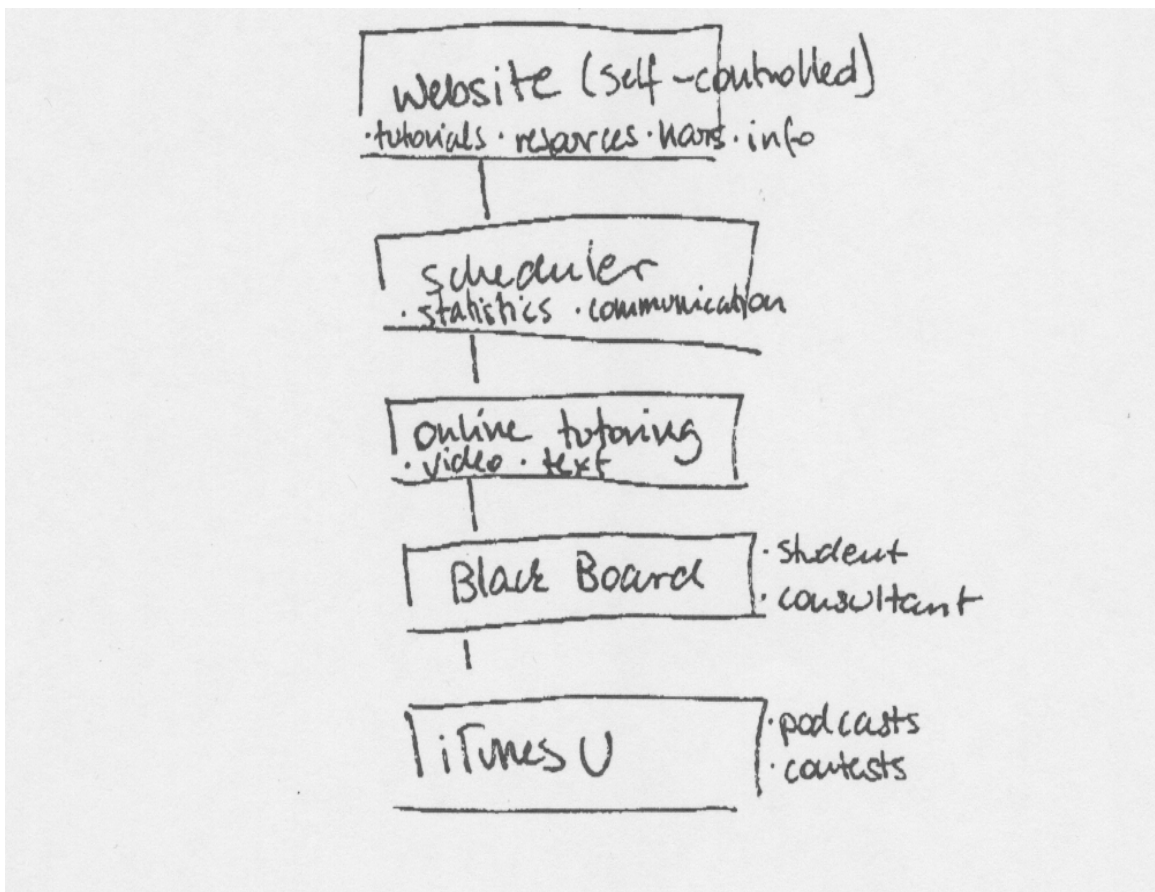 website (self-controlled)
·tutorials · resources · hours · info
scheduler
· statistics · communication
online tutoring
· video · text
Black Board
· student
· consultant
iTunes U
· podcasts
· contests